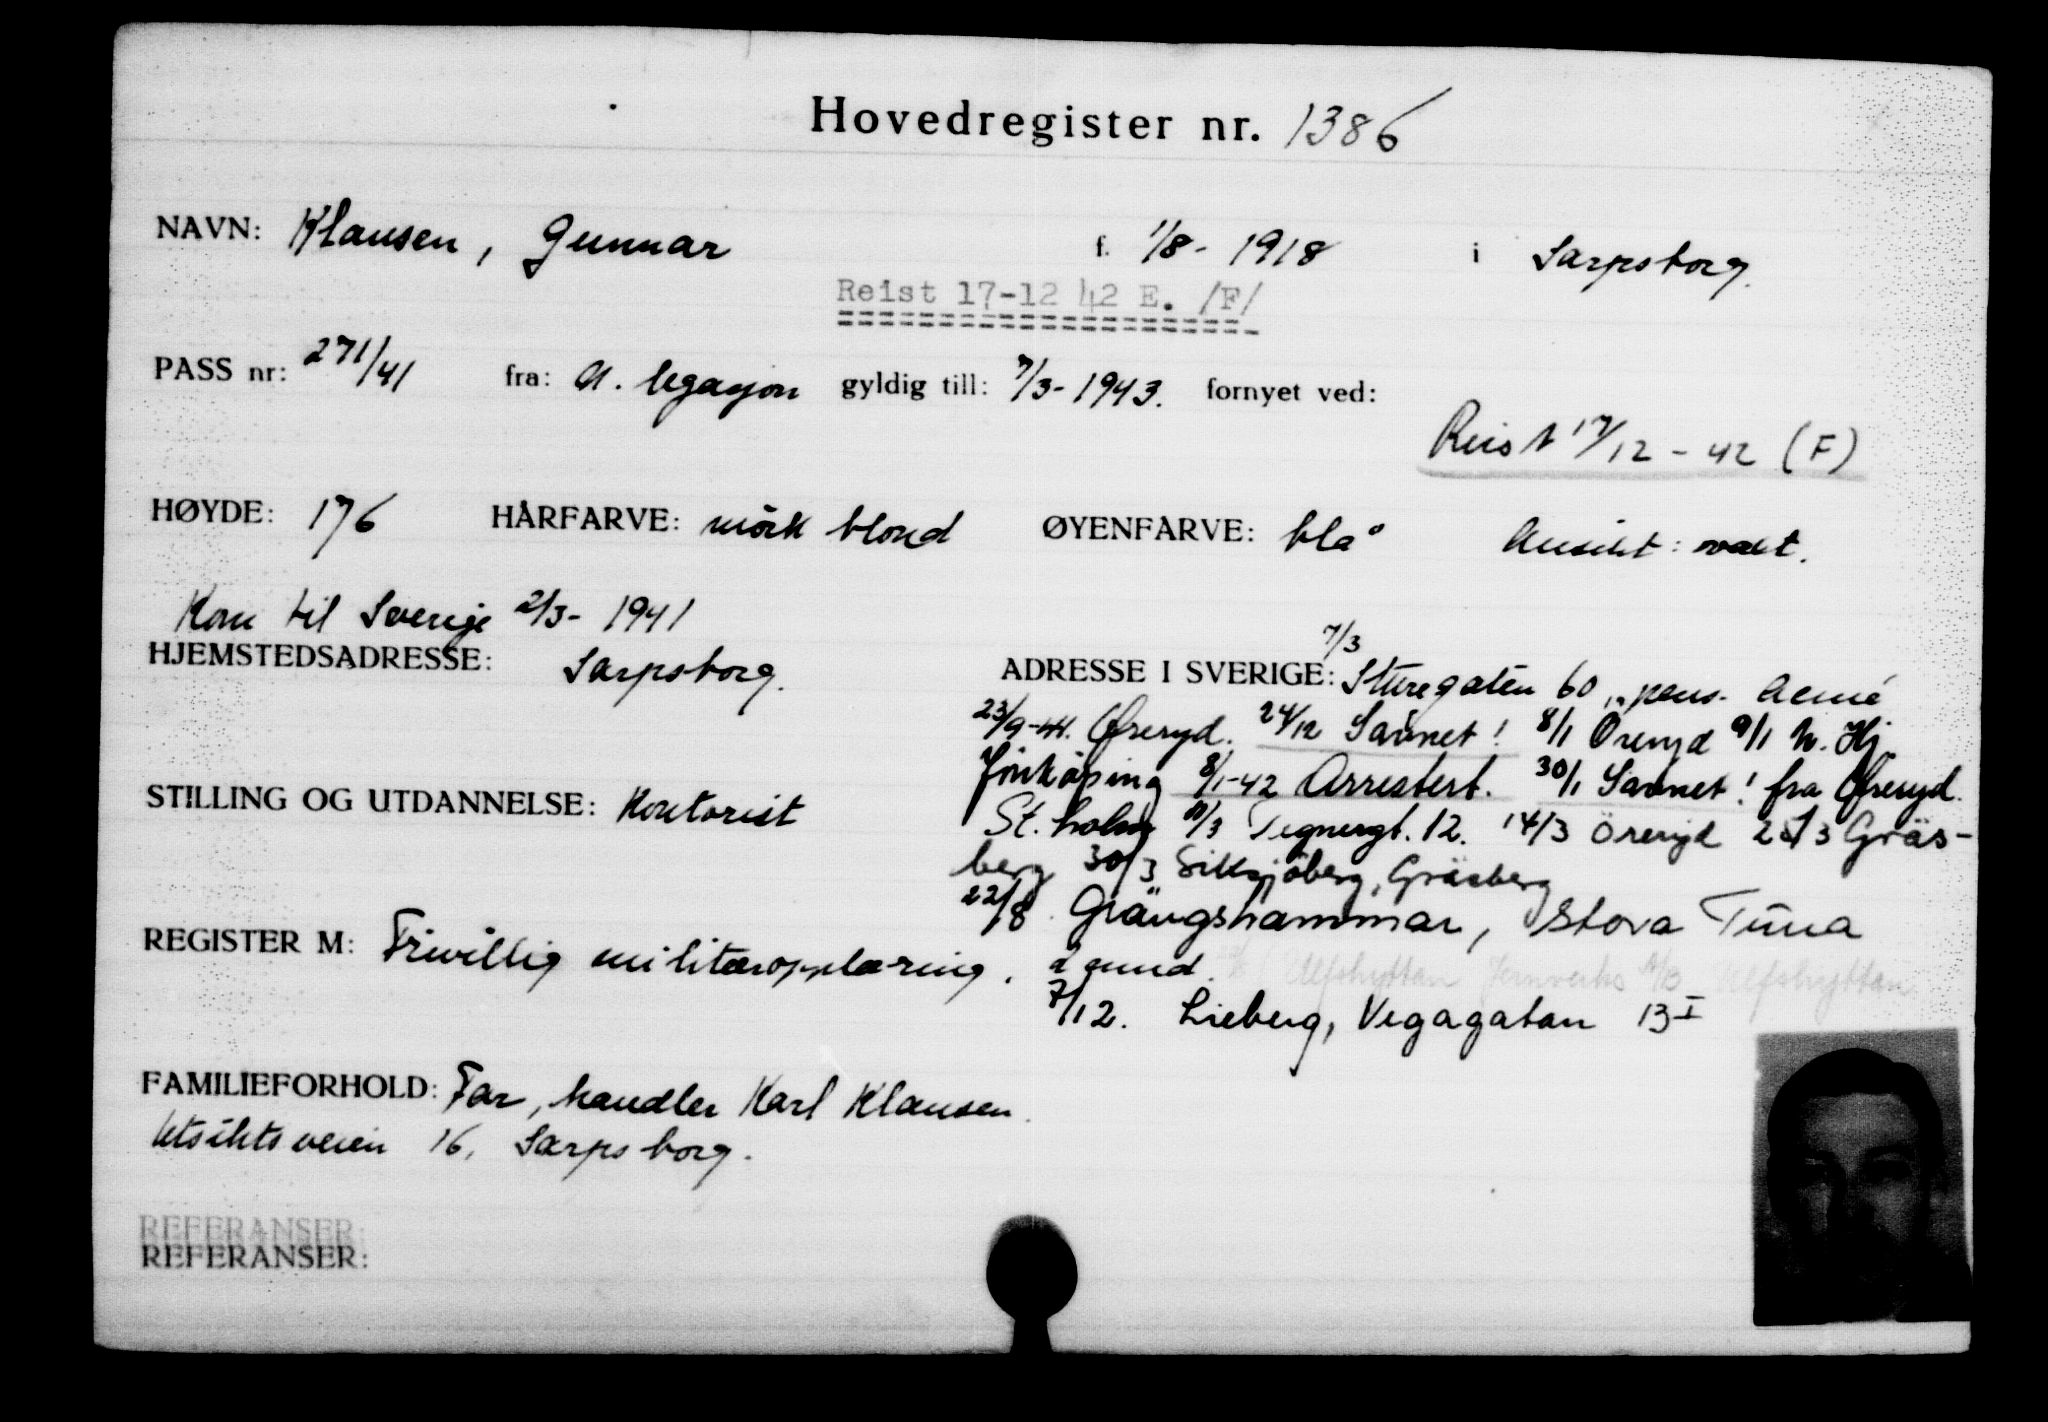 Hovedregister nr. 1386
NAVN: Klausen, Gunnar f. 1/8- 1918 i Sarpsborg.
Reist 17-12 42 E. /F/
PASS nr: 271/41 fra: N. legasjon gyldig till: 7/3- 1943. fornyet ved:
Reist 17/12 - 42 (F)
HØYDE: 176 HÅRFARVE: mörk blond ØYENFARVE: blå Ansikt: ovalt.
Kom til Sverige 2/3- 1941
HJEMSTEDSADRESSE: Sarpsborg.
ADRESSE I SVERIGE: 7/3 Sturegaten 60, pens. Acmé
23/9-41. Øreryd. 24/12 Savnet! 8/1 Öreryd 9/1 N. Hj.
Jönköping 8/1-42 Arrestert. 30/1 Savnet! fra Øreryd.
STILLING OG UTDANNELSE: Kontorist
St. holm 11/3 Tegnergt. 12. 14/3 Öreryd 25/3 Gräs-
berg 30/3 Siksjöberg, Gräsberg
22/8 Grängshammar, Stora Tuna
REGISTER M: Frivillig militæropplæring.
Ulfshyttan Jernverks A/B Ulfshyttan
7/12. Lieberg, Vegagatan 13 I
FAMILIEFORHOLD: Far, handler Karl Klausen.
Utsiktsveien 16, Sarpsborg.
REFERANSER:
REFERANSER: